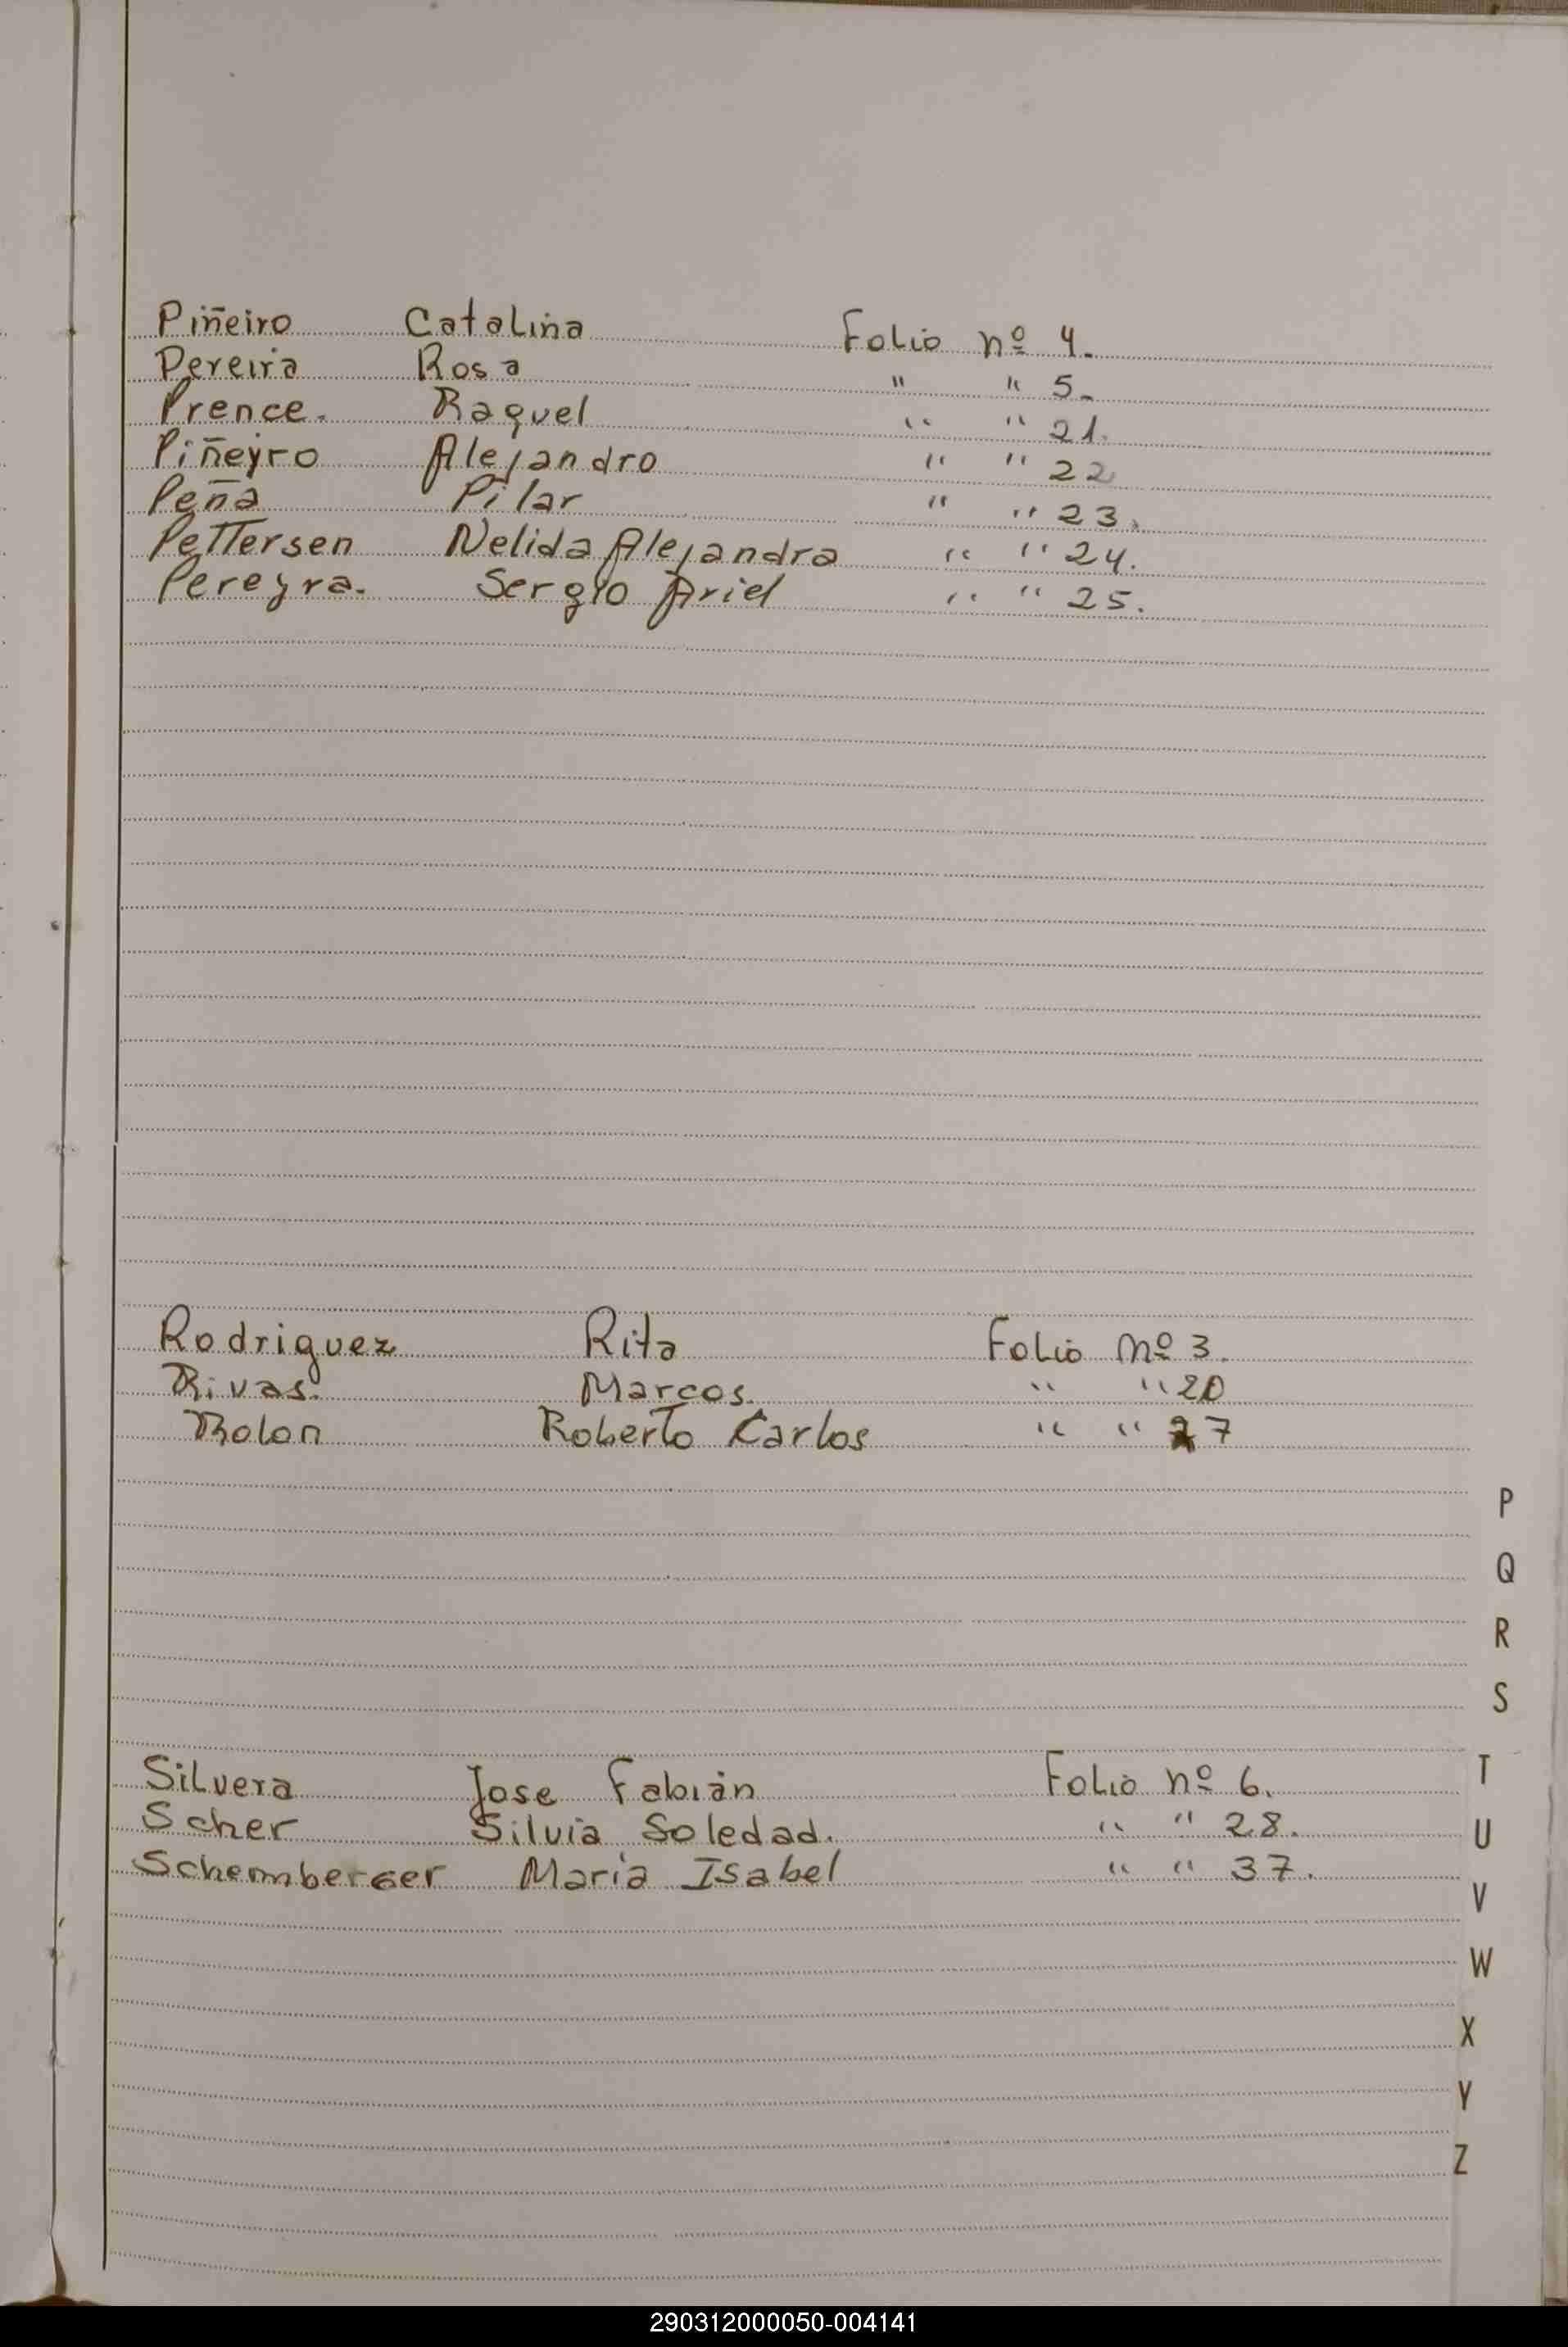 Piñeiro Catalina Folio nº 4.
Pereira Rosa " " 5.
Prence. Raquel " " 21.
Piñeyro Alejandro " " 22
Peña Pilar " " 23.
Pettersen Nelida Alejandra " " 24.
Pereyra. Sergio Ariel " " 25.
Rodriguez Rita Folio nº 3.
Rivas. Marcos. " " 20
Rolon Roberto Carlos " " 27
P
Q
R
S
Silvera Jose Fabián Folio nº 6.
T
Scher Silvia Soledad. " " 28.
U
Schemberger María Isabel " " 37.
V
W
X
Y
Z
290312000050-004141